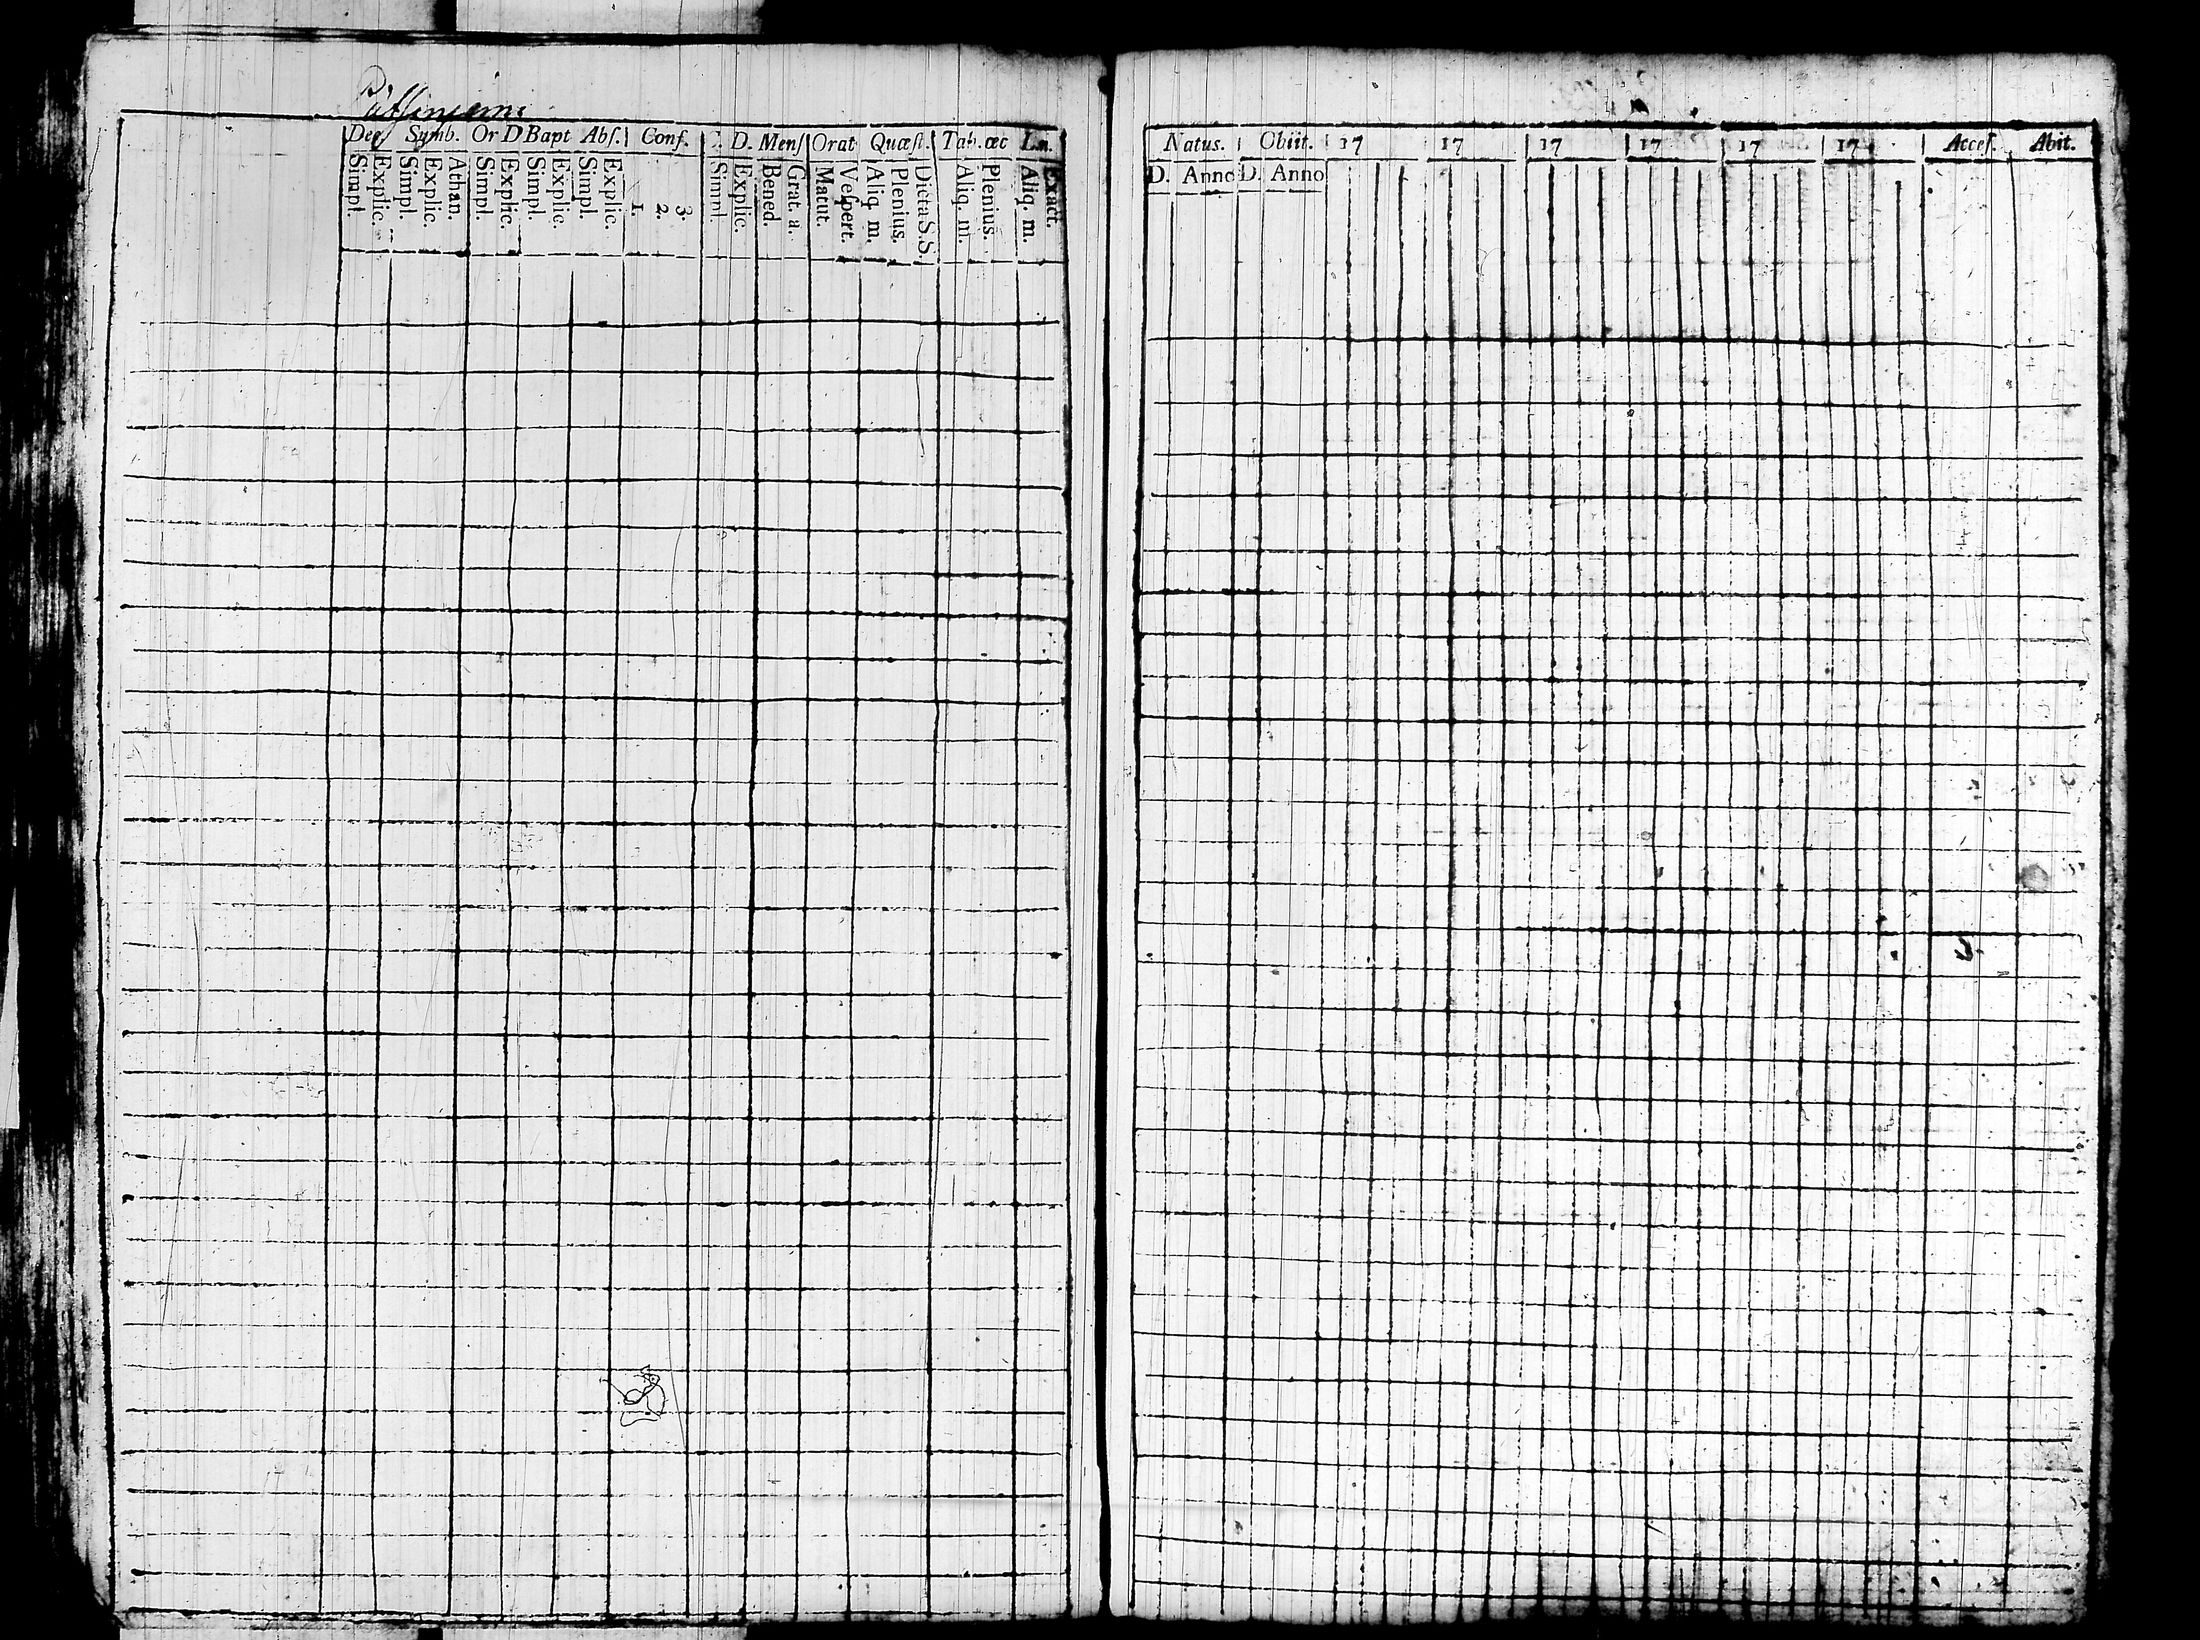 Dec. Symb. Or D Bapt Abſ. Conf. D. Menſ Orat Quæſt. Tab. œc
Simpl. Explic. Simpl. Explic. Athan. Simpl. Explic. Simpl. Explic. Simpl. Explic. 1. 2. 3. Simpl. Explic. Bened. Grat. a. Matut. Veſpert. Aliq. m. Plenius. Dicta S.S. Aliq. m. Plenius. Aliq. m. Exact.
Natus. Obiit. 17 17 17 17 17 17 Acceſ. Abit.
D. Anno D. Anno